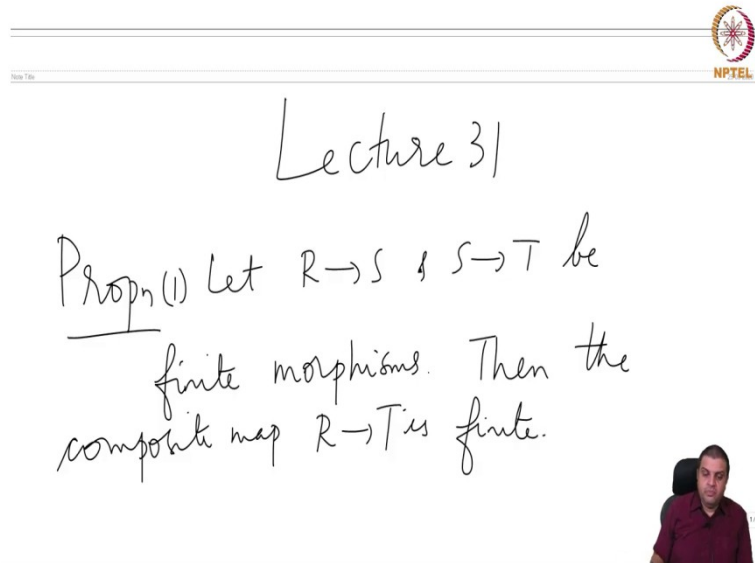 NPTEL
Note Title
Lecture 31
Propn (1) Let R → S & S → T be
finite morphisms. Then the
composite map R → T is finite.